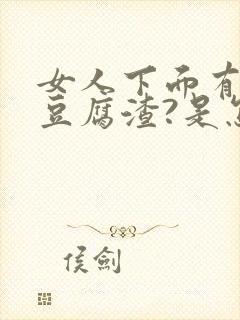 女人下而有
豆腐渣?是怎
侯劍